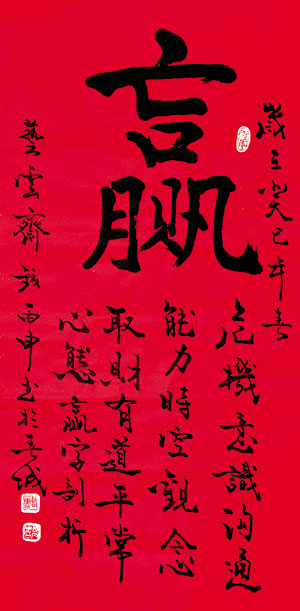 贏
歲在癸巳年春
危機意識沟通
能力時空觀念
取財有道平常
心態贏字剖析
藝雲齋 丙申书於春城